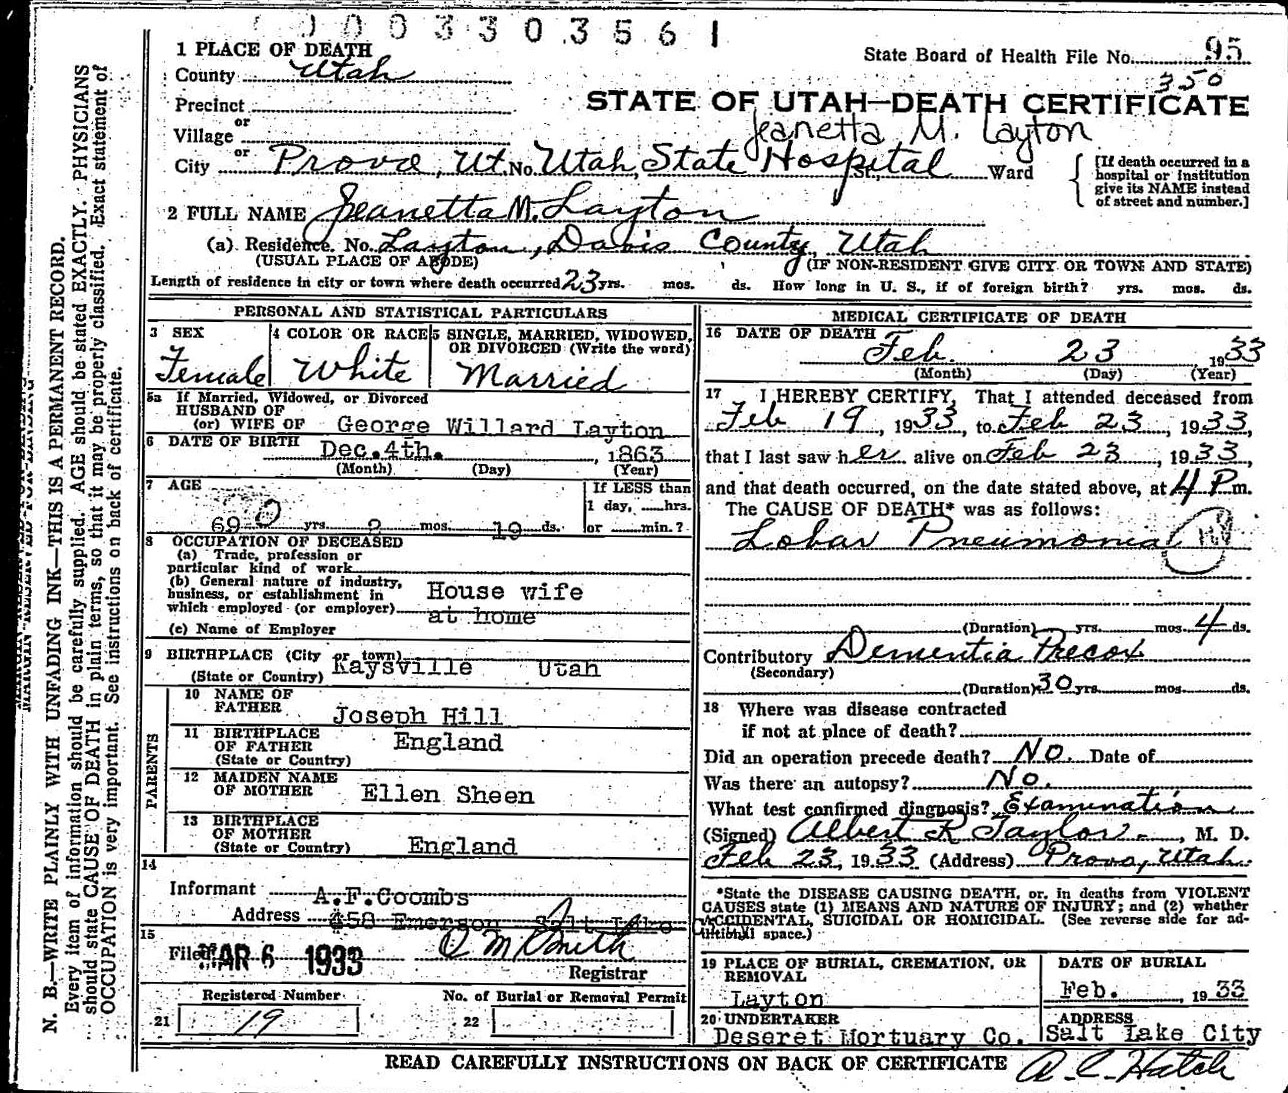 0003303561
1 PLACE OF DEATH
State Board of Health File No. 95
350
County Utah
STATE OF UTAH—DEATH CERTIFICATE
Precinct
or
Village
Jeanetta M. Layton
or
City Provo, Ut. No. Utah, State Hospital St., Ward
[If death occurred in a
hospital or institution
give its NAME instead
of street and number.]
2 FULL NAME Jeanetta M. Layton
(a) Residence. No. Layton, Davis County, Utah
(USUAL PLACE OF ABODE) (IF NON-RESIDENT GIVE CITY OR TOWN AND STATE)
Length of residence in city or town where death occurred 23 yrs. mos. ds. How long in U. S., if of foreign birth? yrs. mos. ds.
PERSONAL AND STATISTICAL PARTICULARS
3 SEX
Female
4 COLOR OR RACE
White
5 SINGLE, MARRIED, WIDOWED,
OR DIVORCED (Write the word)
Married
5a If Married, Widowed, or Divorced
HUSBAND OF
(or) WIFE OF George Willard Layton
6 DATE OF BIRTH Dec. 4th. , 1863
(Month) (Day) (Year)
7 AGE
69 yrs. 2 mos. 19 ds.
If LESS than
1 day, hrs.
or min.?
8 OCCUPATION OF DECEASED
(a) Trade, profession or
particular kind of work
(b) General nature of industry,
business, or establishment in
which employed (or employer)
House wife
at home
(c) Name of Employer
9 BIRTHPLACE (City or town)
(State or Country) Kaysville Utah
PARENTS
10 NAME OF
FATHER Joseph Hill
11 BIRTHPLACE
OF FATHER England
(State or Country)
12 MAIDEN NAME
OF MOTHER Ellen Sheen
13 BIRTHPLACE
OF MOTHER
(State or Country) England
14
Informant A.F.Coombs
Address 458 Emerson Salt Lake
15
Filed MAR 6 1933 Registrar
Registered Number
21 19
No. of Burial or Removal Permit
22
MEDICAL CERTIFICATE OF DEATH
16 DATE OF DEATH Feb. 23 1933
(Month) (Day) (Year)
17 I HEREBY CERTIFY, That I attended deceased from
Feb 19, 1933, to Feb 23, 1933,
that I last saw her alive on Feb 23, 1933,
and that death occurred, on the date stated above, at 4 P.m.
The CAUSE OF DEATH* was as follows:
Lobar Pneumonia
(Duration) yrs. mos. 4 ds.
Contributory Dementia Precox
(Secondary)
(Duration) 30 yrs. mos. ds.
18 Where was disease contracted
if not at place of death?
Did an operation precede death? No. Date of
Was there an autopsy? No.
What test confirmed diagnosis? Examination
(Signed) Albert R Taylor , M. D.
Feb 23, 1933 (Address) Provo, Utah.
*State the DISEASE CAUSING DEATH, or, in deaths from VIOLENT
CAUSES state (1) MEANS AND NATURE OF INJURY; and (2) whether
ACCIDENTAL, SUICIDAL OR HOMICIDAL. (See reverse side for ad-
ditional space.)
19 PLACE OF BURIAL, CREMATION, OR
REMOVAL
Layton
DATE OF BURIAL
Feb. , 1933
20 UNDERTAKER
Deseret Mortuary Co.
ADDRESS
Salt Lake City
READ CAREFULLY INSTRUCTIONS ON BACK OF CERTIFICATE
A. C. Hatch
N. B.—WRITE PLAINLY WITH UNFADING INK—THIS IS A PERMANENT RECORD.
Every item of information should be carefully supplied. AGE should be stated EXACTLY. PHYSICIANS
should state CAUSE OF DEATH in plain terms, so that it may be properly classified. Exact statement of
OCCUPATION is very important. See instructions on back of certificate.